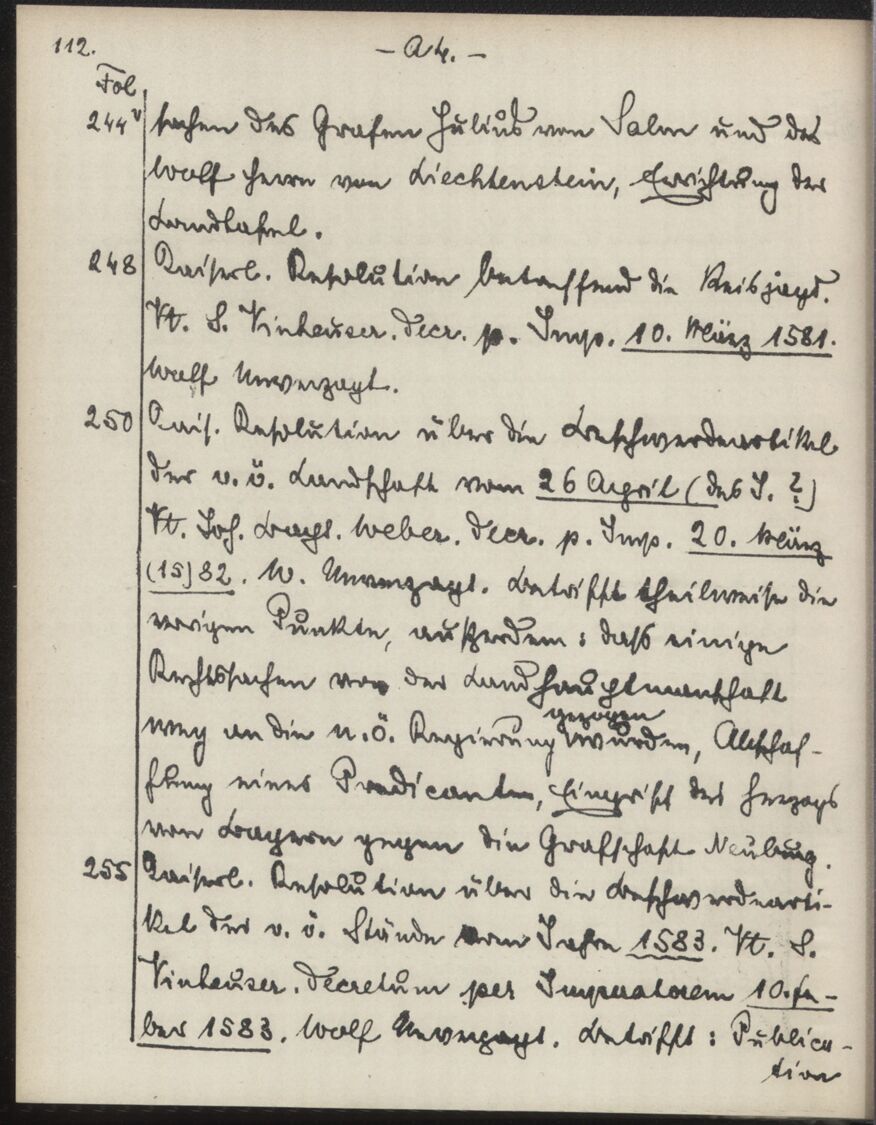 112.
- A 4. -
Fol.
244v sachen des Grafen Julius von Salm und des
Wolf Herrn von Liechtenstein, Errichtung der
Landtafel.
248 Kaiserl. Resolution betreffend die Reisjayd.
Vt. S. Viehauser. Decr. p. Imp. 10. März 1581.
Wolf Unverzagt.
250 Kais. Resolution über die Beschwerdeartikel
der o. ö. Landschaft vom 26 April (des J. ?)
Vt. Joh. Bapt. Weber. Decr. p. Imp. 20. März
(15)82. W. Unverzagt. Betrifft theilweise die
vorigen Punkte, außerdem: daß einige
Rechtssachen von der Landhauptmannschaft
gezogen
weg an die n. ö. Regierung wurden, Abschaf-
fung eines Predicanten, Eingriff des Herzogs
von Bayern gegen die Grafschaft Neuburg.
255 Kaiserl. Resolution über die Beschwerdearti-
kel der o. ö. Stände vom Jahre 1583. Vt. S.
Viehauser. Decretum per Imperatorem 10.
ber 1583. Wolf Unverzagt. Betrifft: Publica-
tion